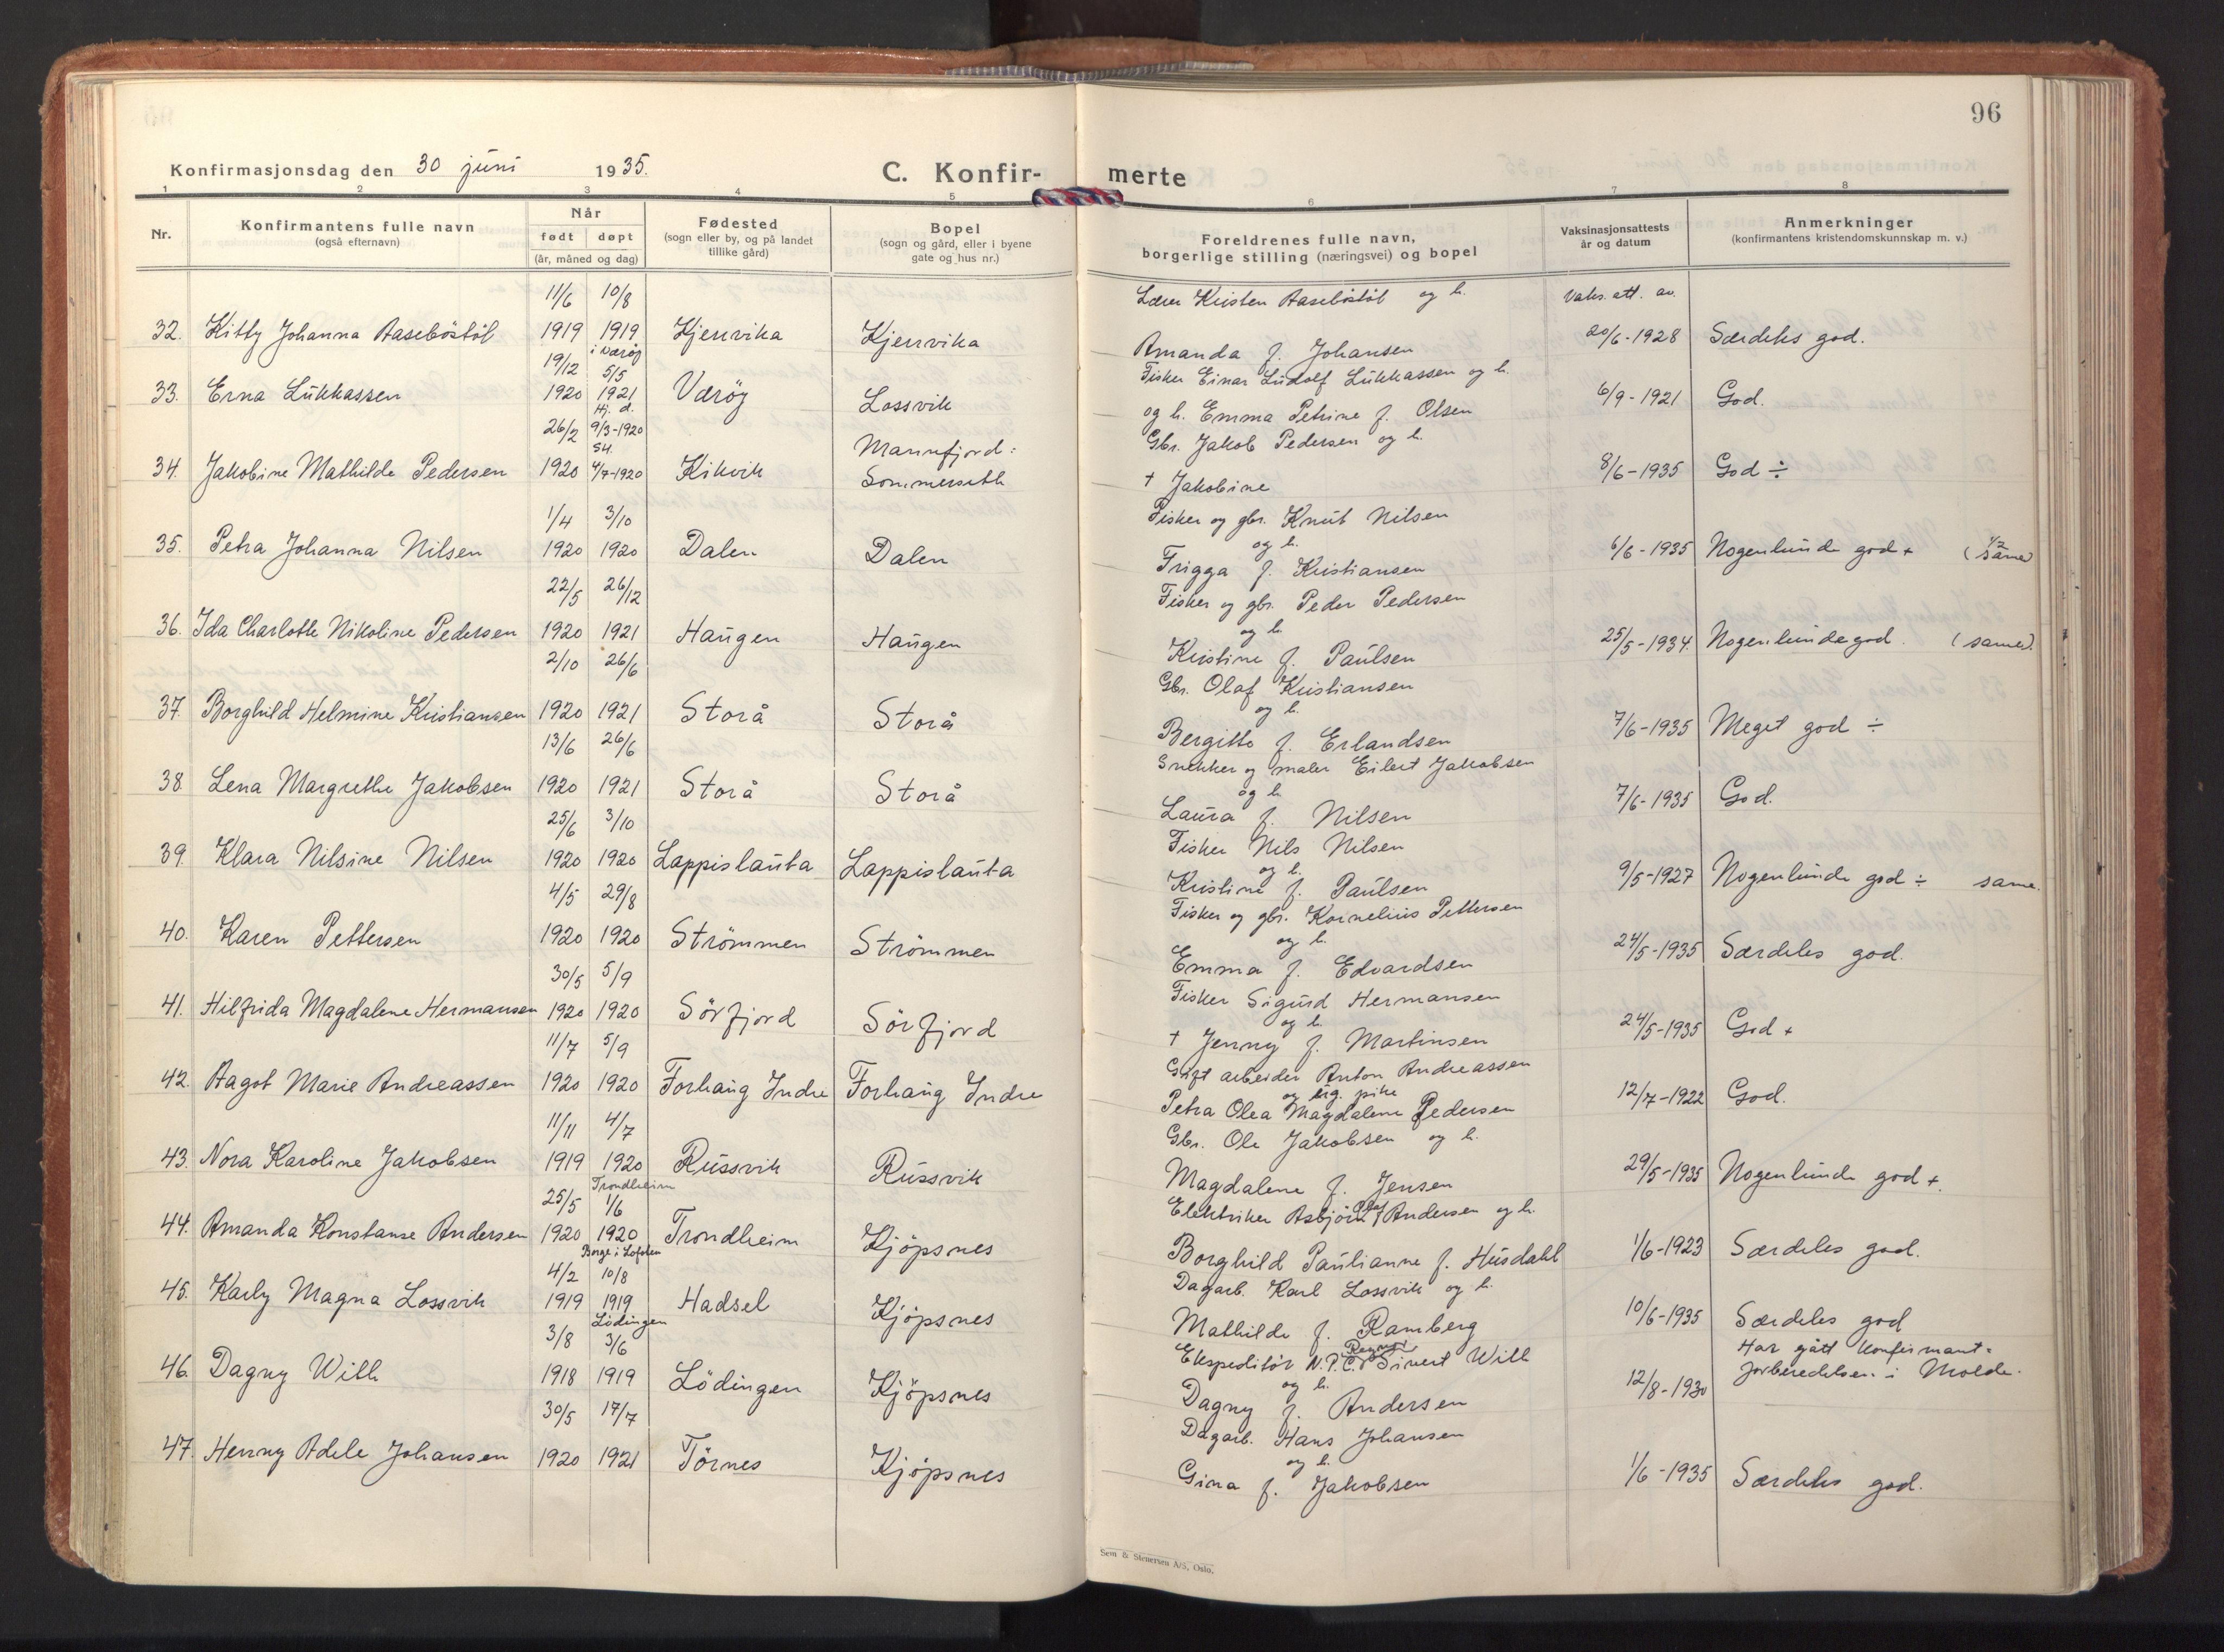 96
Konfirmasjonsdag den 30 juni 1935.
C. Konfir-
merte
1 2 3 4 5 6 7 8
Nr.
Konfirmantens fulle navn
(også efternavn)
Når
født døpt
(år, måned og dag)
Fødested
(sogn eller by, og på landet
tillike gård)
Bopel
(sogn og gård, eller i byene
gate og hus nr.)
Foreldrenes fulle navn,
borgerlige stilling (næringsvei) og bopel
Vaksinasjonsattests
år og datum
Anmerkninger
(konfirmantens kristendomskunnskap m. v.)
11/6 10/8 Lærer Kristen Aaseböstöl og h. Vaks. att. av.
32. Kitty Johanna Aaseböstöl 1919 1919 Kjerrvika Kjerrvika Amanda f. Johansen 20/6-1928 Særdeles god.
i Værøy
19/12 5/5 Fisker Einar Ludolf Lukkassen og h.
33. Erna Lukkassen 1920 1921 Værøy Lossvik og h. Emma Petrine f. Olsen 6/9-1921 God.
Hj. d.
26/2 9/3-1920 Mannfjord= Gbr. Jakob Pedersen og h.
St.
34. Jakobine Mathilde Pedersen 1920 4/7-1920 Kikvik Sommerseth † Jakobine 8/6-1935 God ÷
1/4 3/10 Fisker og gbr. Knut Nilsen
og h.
35. Petra Johanna Nilsen 1920 1920 Dalen Dalen Frigga f. Kristiansen 6/6-1935 Nogenlunde god + (1/2 same)
22/5 26/12 Fisker og gbr. Peder Pedersen
og h.
36. Ida Charlotte Nikoline Pedersen 1920 1921 Haugen Haugen Kristine f. Paulsen 25/5-1934 Nogenlunde god. (same).
2/10 26/6 Gbr. Olaf Kristiansen
og h.
37. Borghild Helmine Kristiansen 1920 1921 Storå Storå Bergitte f. Erlandsen 7/6-1935 Meget god ÷
13/6 26/6 Snekker og maler Eilert Jakobsen
og h.
38. Lena Margrethe Jakobsen 1920 1921 Storå Storå Laura f. Nilsen 7/6-1935 God.
25/6 3/10 Fisker Nils Nilsen
og h.
39. Klara Nilsine Nilsen 1920 1920 Lappislauta Lappislauta Kristine f. Paulsen 9/5-1927 Nogenlunde god ÷ same.
4/5 29/8 Fisker og gbr. Kornelius Pettersen
og h.
40. Karen Pettersen 1920 1920 Strömmen Strömmen Emma f. Edvardsen 24/5-1935 Særdeles god.
30/5 5/9 Fisker Sigurd Hermansen
og h.
41. Hilfrida Magdalene Hermansen 1920 1920 Sörfjord Sörfjord † Jenny f. Martinsen 24/5-1935 God +
11/7 5/9 Gift arbeider Anton Andreassen
og ug. pike
42. Aagot Marie Andreassen 1920 1920 Forhaug Indre Forhaug Indre Petra Olea Magdalene Pedersen 12/7-1922 God.
11/11 4/7 Gbr. Ole Jakobsen og h.
43. Nora Karoline Jakobsen 1919 1920 Russvik Russvik Magdalene f. Jensen 29/5-1935 Nogenlunde god +.
Trondheim
25/5 1/6 Elektriker Asbjörn Olaf Andersen og h.
44. Amanda Konstanse Andersen 1920 1920 Trondheim Kjöpsnes Borghild Paulianne f. Husdahl 1/6-1923 Særdeles god.
Borge i Lofoten
4/2 10/8 Dagarb. Karl Lossvik og h.
45. Karly Magna Lossvik 1919 1919 Hadsel Kjöpsnes Mathilde f. Ramberg 10/6-1935 Særdeles god
Lödingen
3/8 3/6 Ekspeditör N.P.C. Sivert With Har gått konfirmant=
og h.
46. Dagny With 1918 1919 Lödingen Kjöpsnes Dagny f. Andersen 12/8-1930 forberedelsen i Molde.
30/5 17/7 Dagarb. Hans Johansen
og h.
47. Henny Adele Johansen 1920 1921 Törnes Kjöpsnes Gina f. Jakobsen 1/6-1935 Særdeles god.
Sem & Stenersen A/S, Oslo.